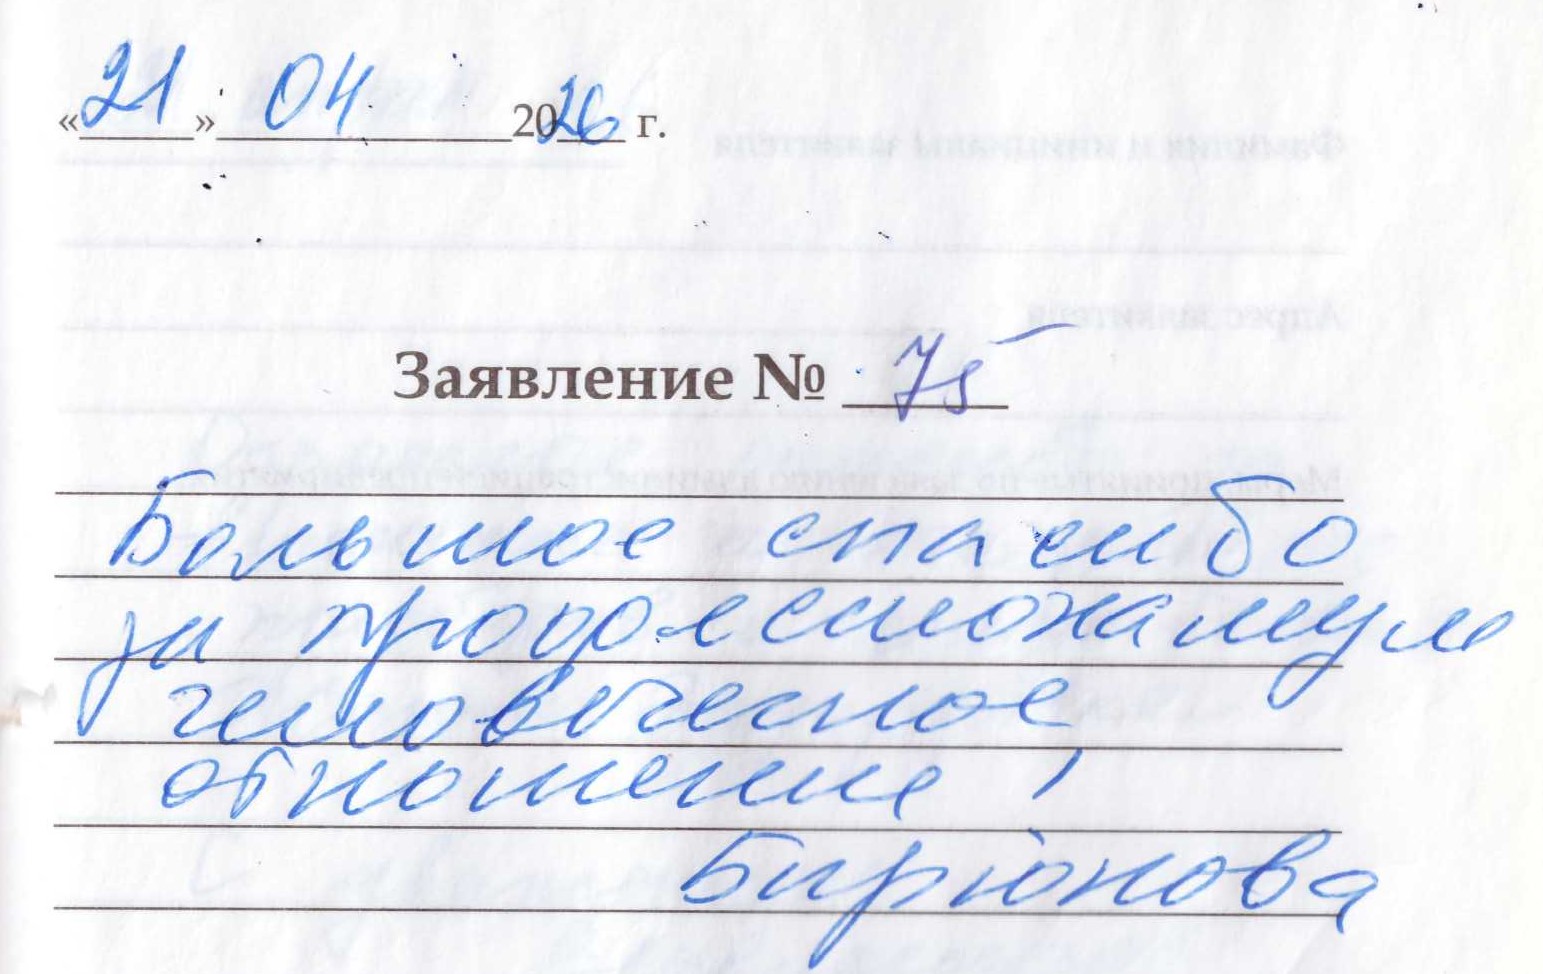 «21» 04 2026 г.
Заявление № 75
Большое спасибо
за профессионализм
человеческое
отношение!
Бирюкова